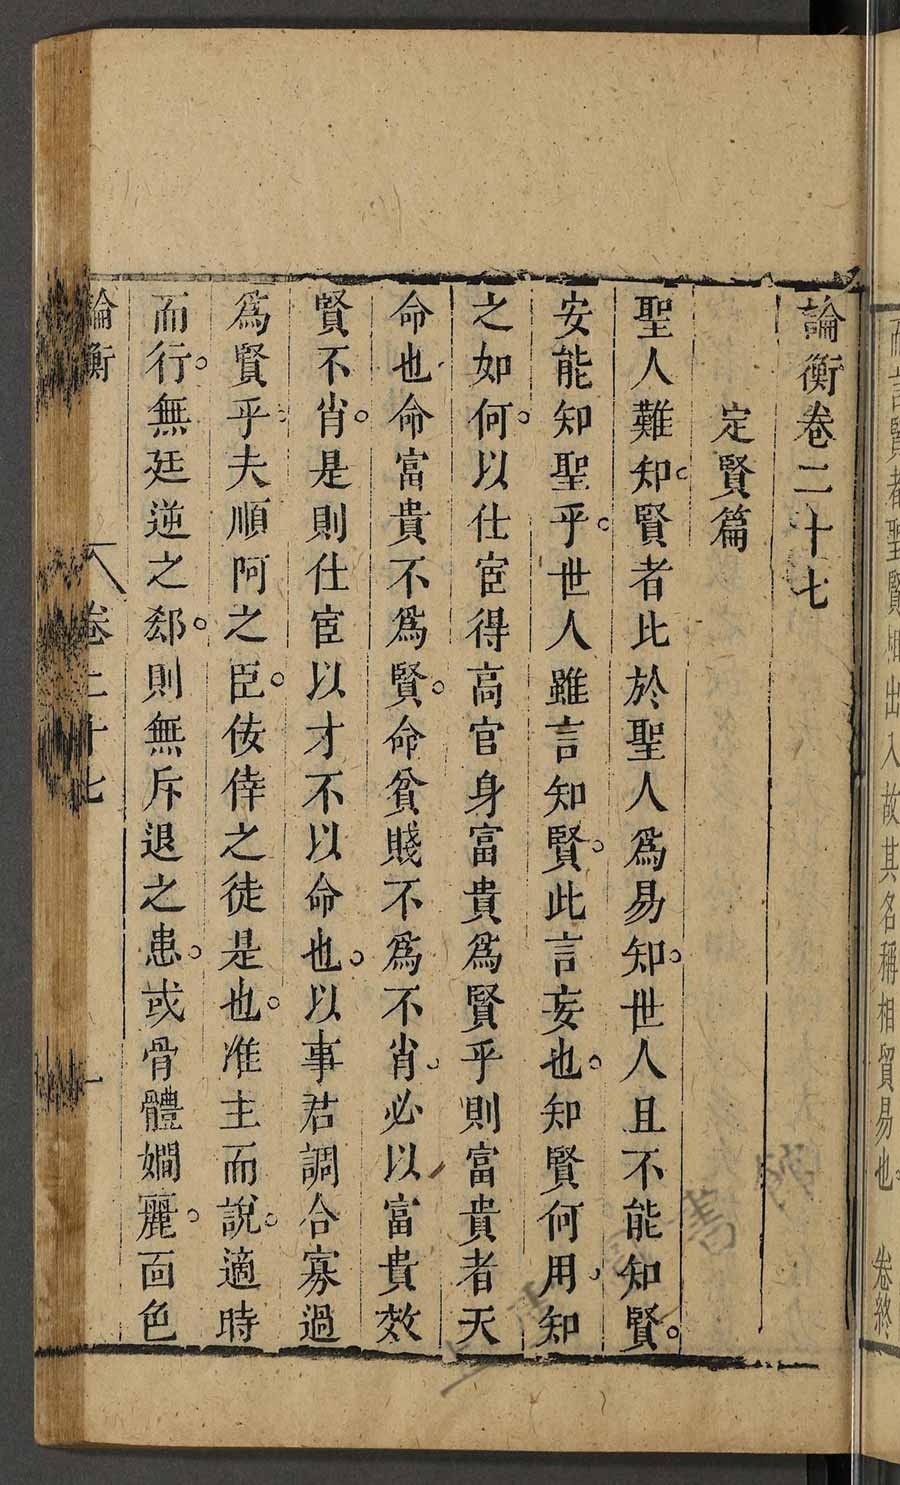 而言賢者聖賢相出入故其名稱相貿易也。　卷終
論衡卷二十七
定賢篇
聖人難知。賢者比於聖人爲易知。世人且不能知賢。
安能知聖乎。世人雖言知賢。此言妄也。知賢何用。知
之如何。以仕宦得高官身富貴爲賢乎則富貴者天
命也。命富貴不爲賢。命貧賤不爲不肖。必以富貴效
賢不肖。是則仕宦以才不以命也。以事君調合寡過
爲賢乎。夫順阿之臣。佞倖之徒是也。准主而說。適時
而行。無廷逆之郄。則無斥退之患。或骨體嫺麗。面色
論衡　卷二十七　一